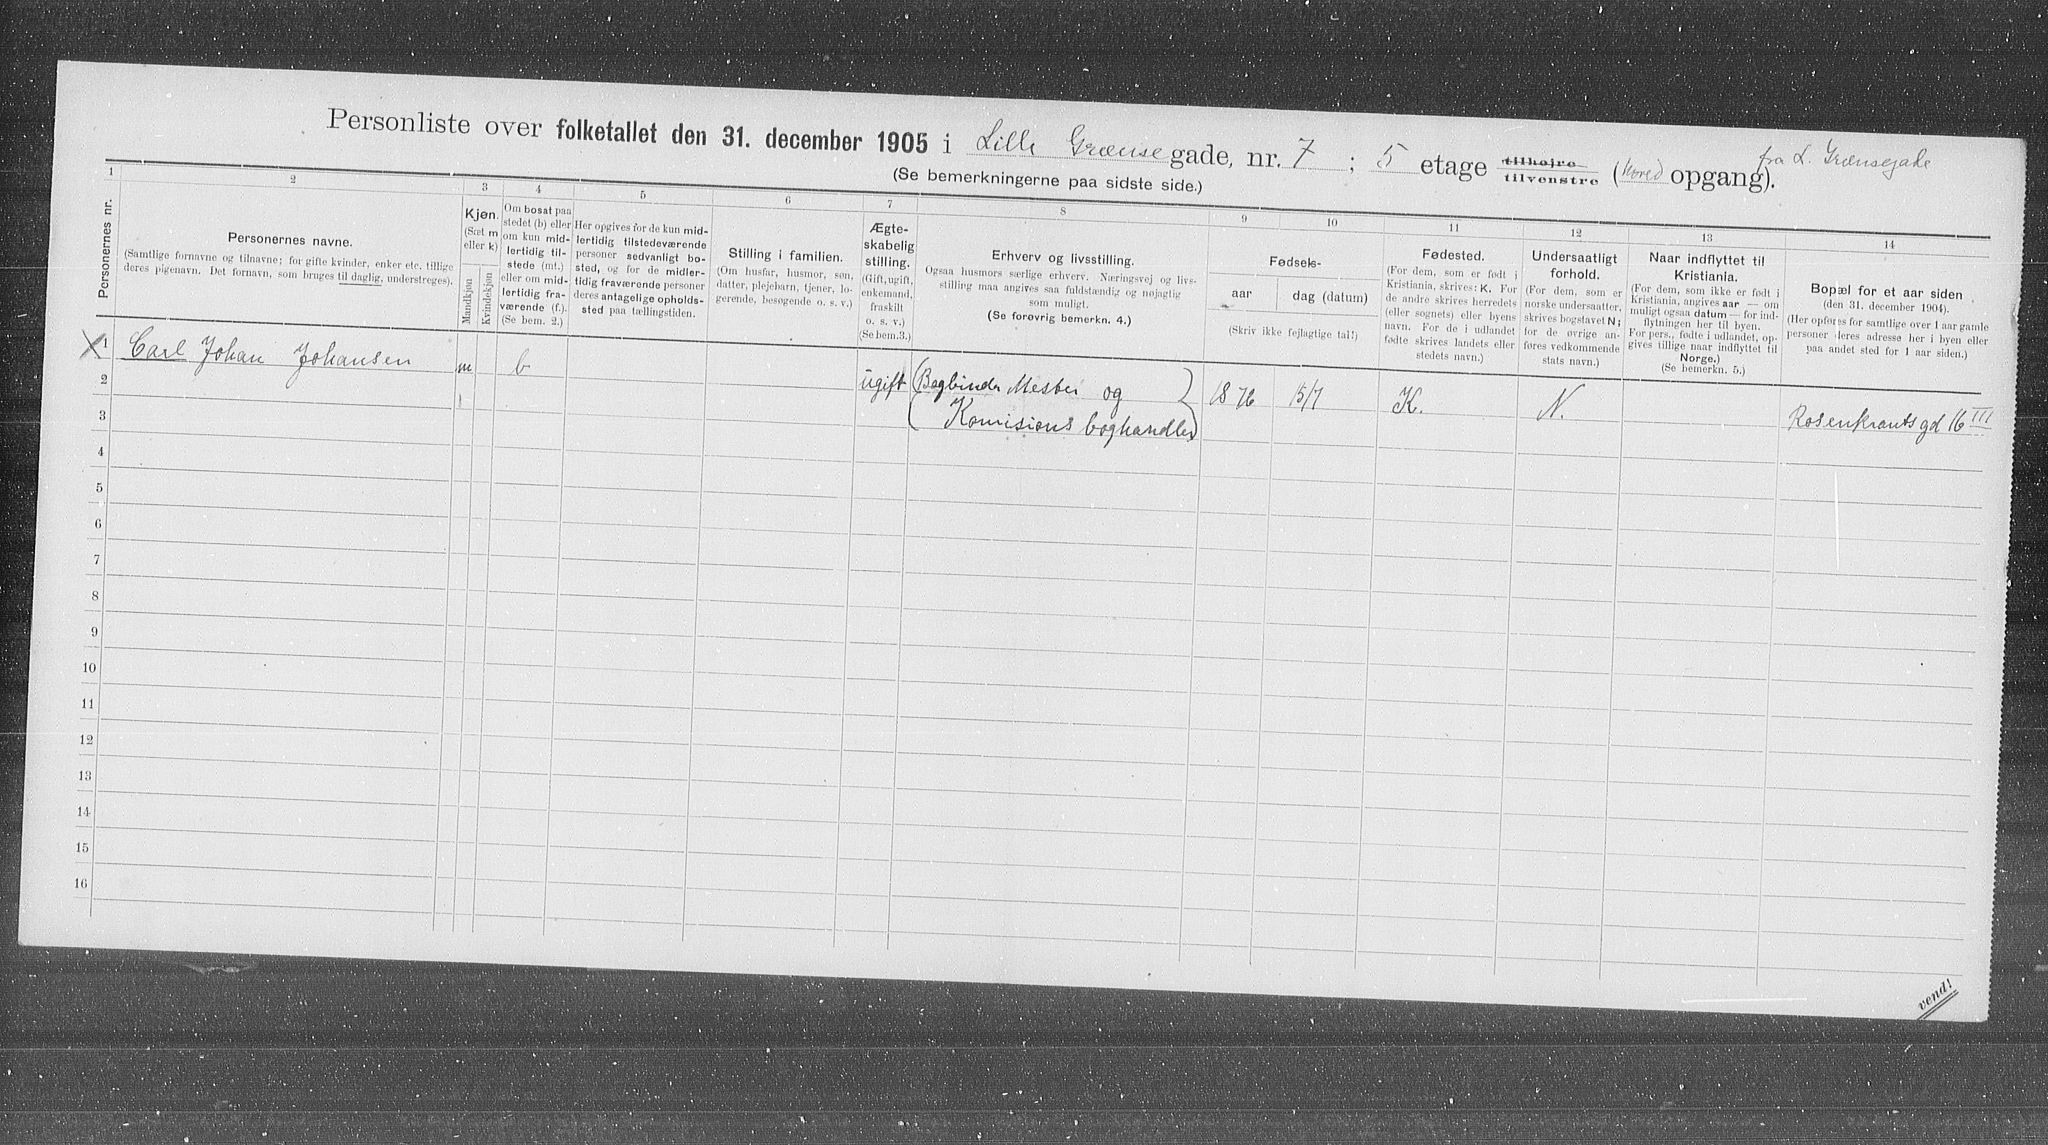 Personliste over folketallet den 31. december 1905 i Lille Grænsegade, nr. 7 ; 5 etage tilhøjre tilvenstre (hoved opgang).
fra L. Grænsegade
(Se bemerkningerne paa sidste side.)
1 2 3 4 5 6 7 8 9 10 11 12 13 14
Personernes nr.
Personernes navne.
(Samtlige fornavne og tilnavne; for gifte kvinder, enker etc. tillige
deres pigenavn. Det fornavn, som bruges til daglig, understreges).
Kjøn.
(Sæt m
eller k)
Mandkjøn
Kvindekjøn
Om bosat paa
stedet (b) eller
om kun mid-
lertidig til-
stede (mt.)
eller om mid-
lertidig fra-
værende (f.).
(Se bem. 2.)
Her opgives for de kun mid-
lertidig tilstedeværende
personer sedvanligt bo-
sted, og for de midler-
tidig fraværende personer
deres antagelige opholds-
sted paa tællingstiden.
Stilling i familien.
(Om husfar, husmor, søn,
datter, plejebarn, tjener, lo-
gerende, besøgende o. s. v.)
Ægte-
skabelig
stilling.
(Gift, ugift,
enkemand,
fraskilt
o. s. v.)
(Se bem.3.)
Erhverv og livsstilling.
Ogsaa husmors særlige erhverv. Næringsvej og livs-
stilling maa angives saa fuldstændig og nøjagtig
som muligt.
(Se forøvrig bemerkn. 4.)
Fødsels-
aar
dag (datum)
(Skriv ikke fejlagtige tal!)
Fødested.
(For dem, som er født i
Kristiania, skrives: K. For
de andre skrives herredets
(eller sognets) eller byens
navn. For de i udlandet
fødte skrives landets eller
stedets navn.)
Undersaatligt
forhold.
(For dem, som er
norske undersaatter,
skrives bogstavet N;
for de øvrige an-
føres vedkommende
stats navn.)
Naar indflyttet til
Kristiania.
(For dem, som ikke er født i
Kristiania, angives aar — om
muligt ogsaa datum — for ind-
flytningen her til byen.
For pers., fødte i udlandet, op-
gives tillige naar indflyttet til
Norge.)
(Se bemerkn. 5.)
Bopæl for et aar siden
(den 31. december 1904).
(Her opføres for samtlige over 1 aar gamle
personer deres adresse her i byen eller
paa andet sted for 1 aar siden.)
1 Carl Johan Johansen m b ugift Bogbinder Mester og 1876 15/7 K. N. Rosenkrantsgd 16 III
2 Komisions boghandler
3
4
5
6
7
8
9
10
11
12
13
14
15
16
vend!